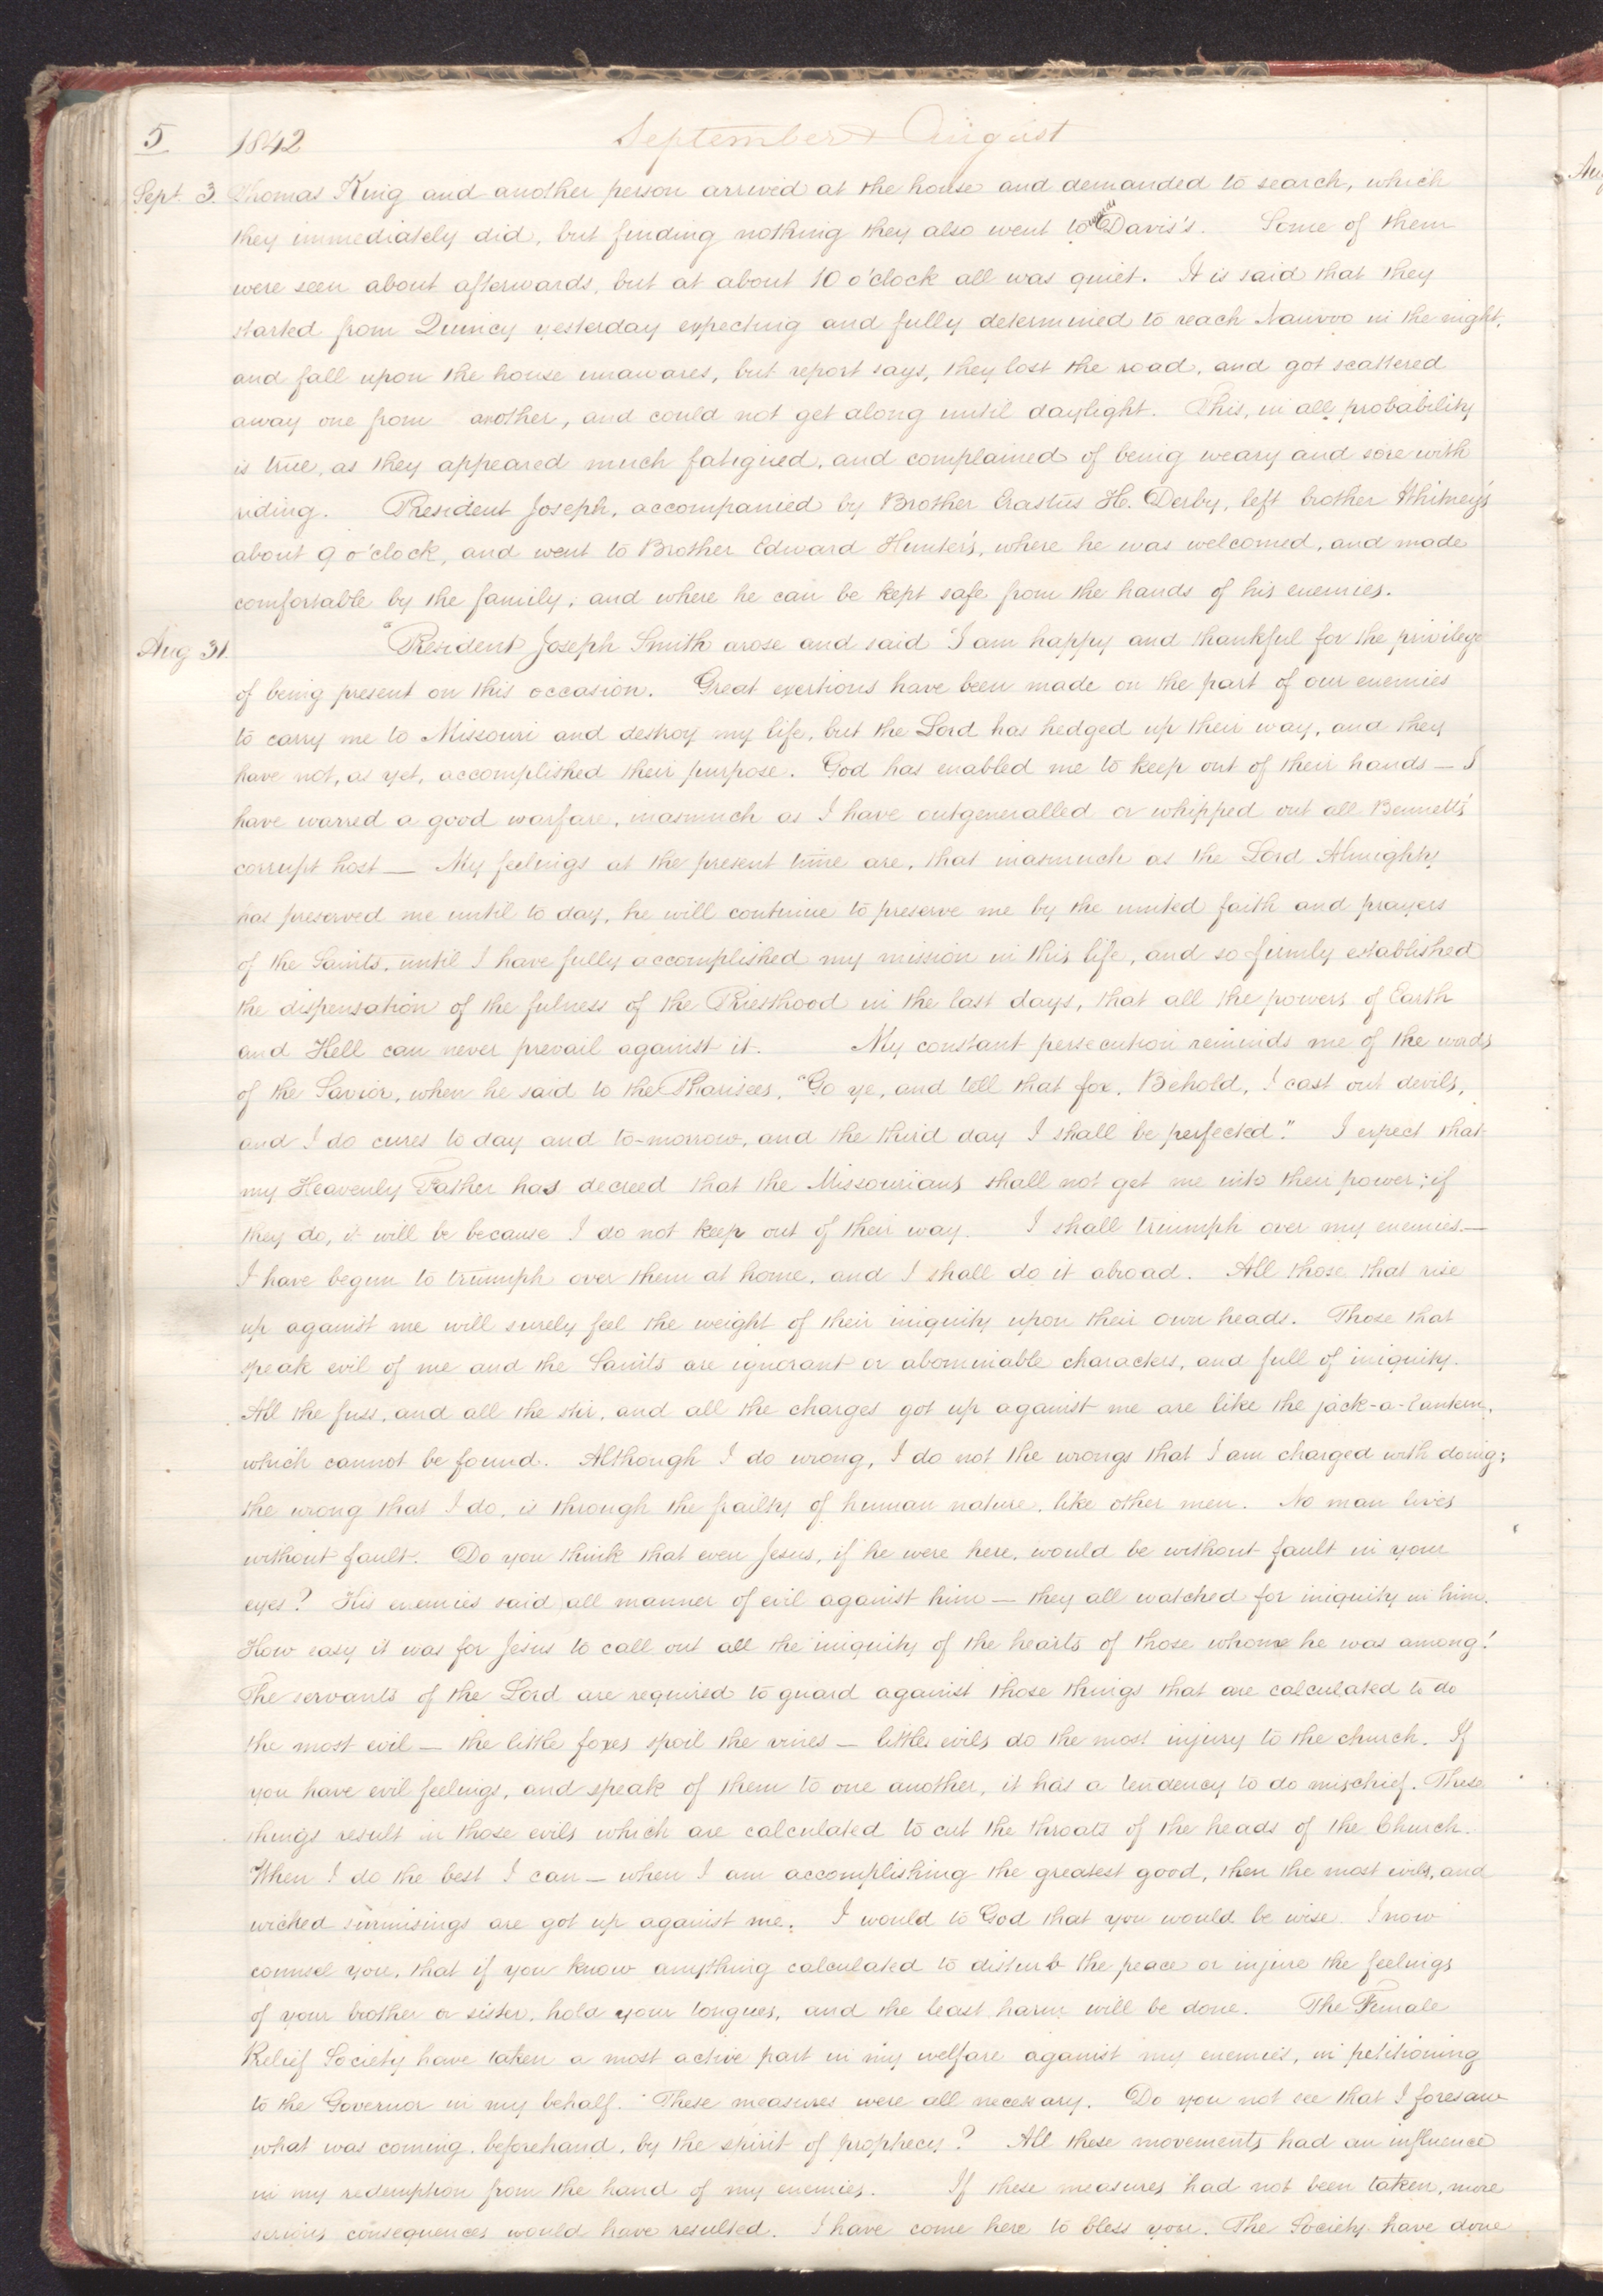 5 1842 September & August
Sept. 3. Thomas King and another person arrived at the house and demanded to search, which
they immediately did, but finding nothing they also went to Davis's. Some of them
were seen about afterwards, but at about 10 o'clock all was quiet. It is said that they
started from Quincy yesterday expecting and fully determined to reach Nauvoo in the night,
and fall upon the house unawares, but report says, they lost the road, and got scattered
away one from another, and could not get along until daylight. This, in all probability
is true, as they appeared much fatigued, and complained of being weary and sore with
riding. President Joseph, accompanied by Brother Erastus H. Derby, left brother Whitney's
about 9 o'clock, and went to Brother Edward Hunter's, where he was welcomed, and made
comfortable by the family, and where he can be kept safe from the hands of his enemies.
Aug 31. "President Joseph Smith arose and said "I am happy and thankful for the privilege
of being present on this occasion. Great exertions have been made on the part of our enemies
to carry me to Missouri and destroy my life, but the Lord has hedged up their way, and they
have not, as yet, accomplished their purpose. God has enabled me to keep out of their hands — I
have warred a good warfare, inasmuch as I have outgeneralled or whipped out all Bennett's
corrupt host — My feelings at the present time are, that inasmuch as the Lord Almighty
has preserved me until to day, he will continue to preserve me by the united faith and prayers
of the Saints, until I have fully accomplished my mission in this life, and so firmly established
the dispensation of the fulness of the Priesthood in the last days, that all the powers of Earth
and Hell can never prevail against it. My constant persecution reminds me of the words
of the Savior, when he said to the Pharisees, "Go ye, and tell that fox, Behold, I cast out devils,
and I do cures to day and to-morrow, and the third day I shall be perfected." I expect that
my Heavenly Father has decreed that the Missourians shall not get me into their power; if
they do, it will be because I do not keep out of their way. I shall triumph over my enemies —
I have begun to triumph over them at home, and I shall do it abroad. All those that rise
up against me will surely feel the weight of their iniquity upon their own heads. Those that
speak evil of me and the Saints are ignorant or abominable characters, and full of iniquity.
All the fuss, and all the stir, and all the charges got up against me are like the jack-a-lantern,
which cannot be found. Although I do wrong, I do not the wrongs that I am charged with doing;
the wrong that I do, is through the frailty of human nature, like other men. No man lives
without fault. Do you think that even Jesus, if he were here, would be without fault in your
eyes? His enemies said all manner of evil against him — they all watched for iniquity in him.
How easy it was for Jesus to call out all the iniquity of the hearts of those whome he was among!
The servants of the Lord are required to guard against those things that are calculated to do
the most evil — the little foxes spoil the vines — little evils do the most injury to the church. If
you have evil feelings, and speak of them to one another, it has a tendency to do mischief. These
things result in those evils which are calculated to cut the throats of the heads of the Church.
When I do the best I can — when I am accomplishing the greatest good, then the most evils, and
wicked surmisings are got up against me. I would to God that you would be wise. I now
counsel you, that if you know anything calculated to disturb the peace or injure the feelings
of your brother or sister, hold your tongues, and the least harm will be done. The Female
Relief Society have taken a most active part in my welfare against my enemies, in petitioning
to the Governor in my behalf. These measures were all necessary. Do you not see that I foresaw
what was coming, beforehand, by the spirit of prophecy? All these movements had an influence
in my redemption from the hand of my enemies. If these measures had not been taken, more
serious consequences would have resulted. I have come here to bless you. The Society have done